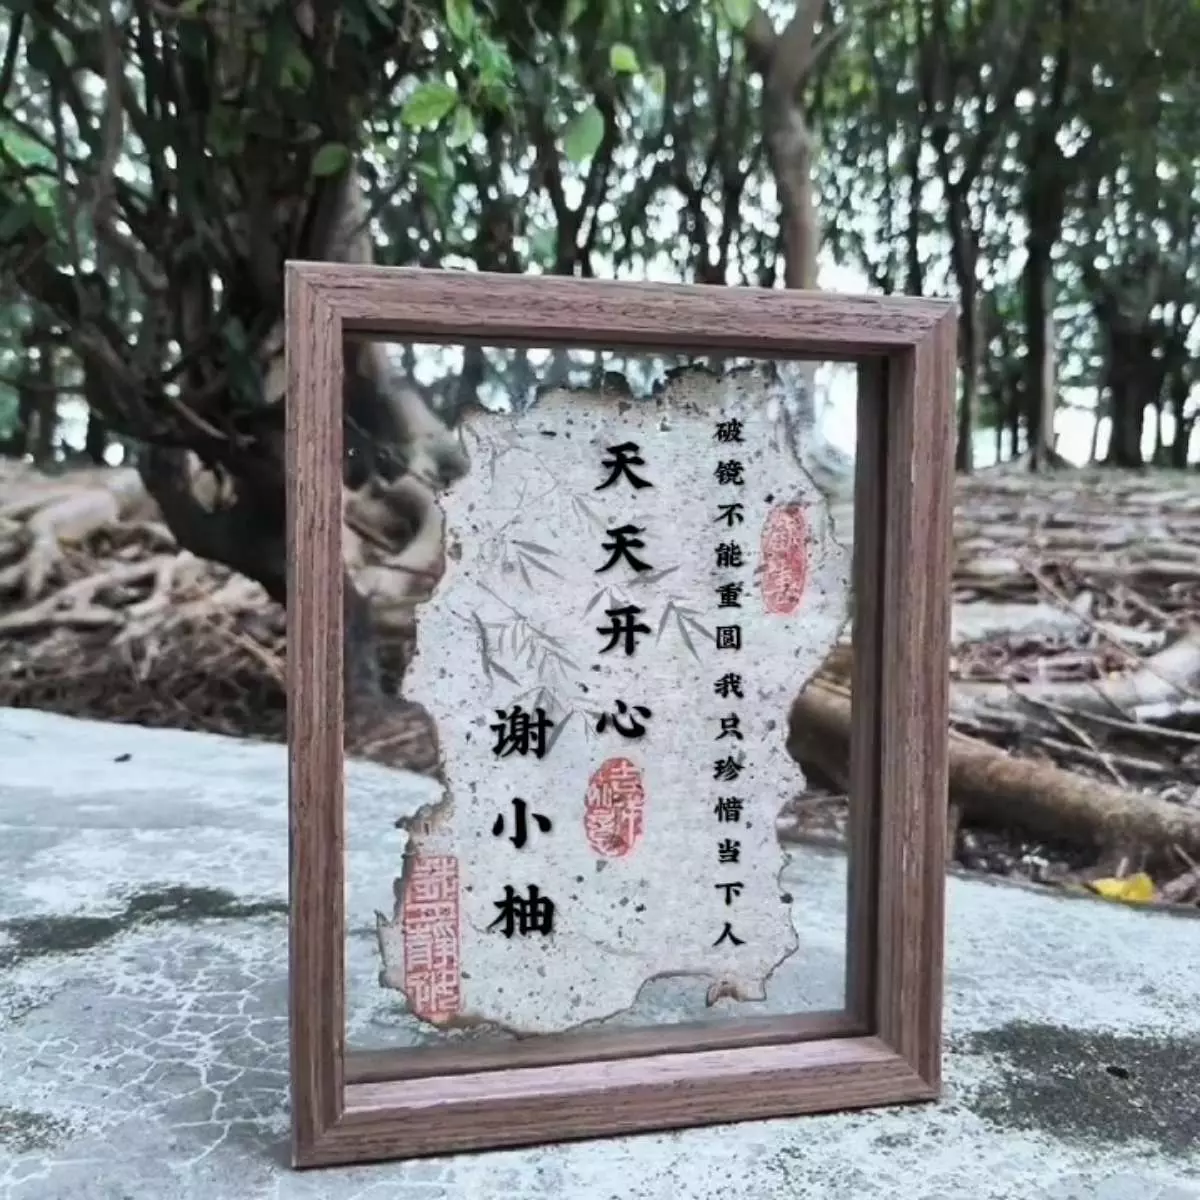 破镜不能重圆我只珍惜当下人
天天开心
谢小柚